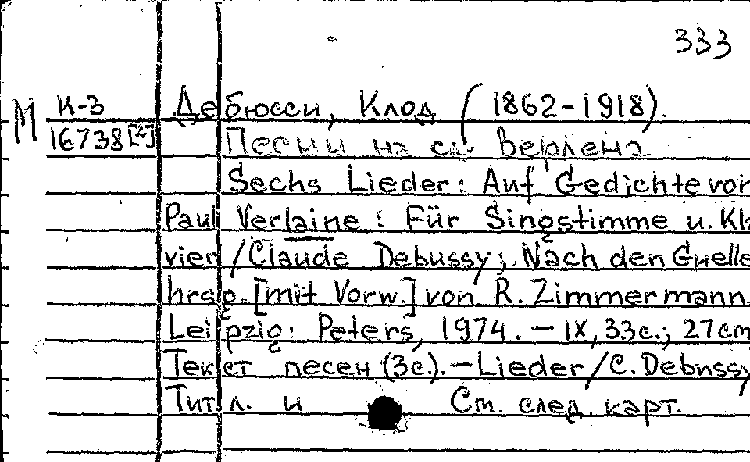 333
М К-3 Дебюсси, Клод (1862-1918).
16738[2] Песни на сл. Верлена
Sechs Lieder: Auf Gedichte von
Paul Verlaine: Für Singstimme u. Kla
vier/Claude Debussy; Nach den Quelle
hrsg. [mit Vorw.] von R. Zimmermann.
Leipzig: Peters, 1974. — IX, 33с.; 27cm
Текст песен (3с.). — Lieder/C. Debussy
Тит. л. и См. след. карт.